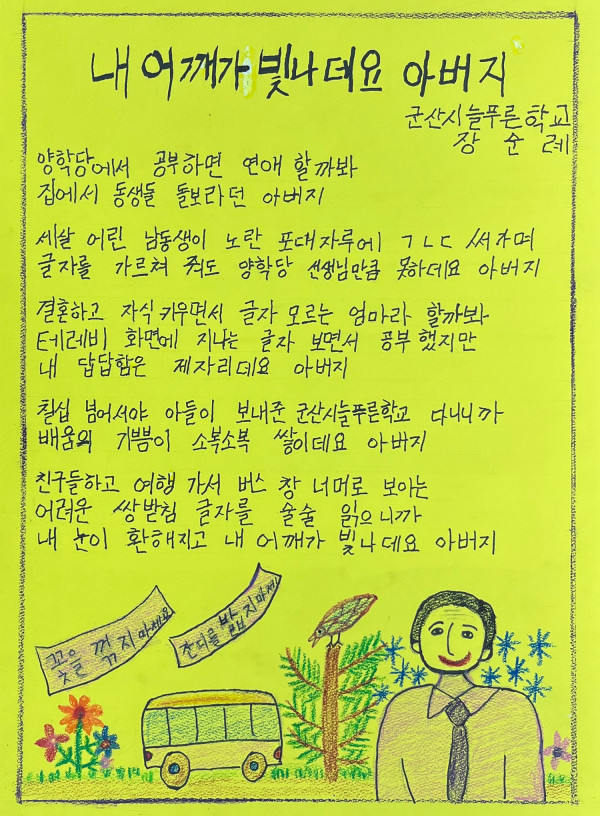 내 어깨가 빛나데요 아버지
군산시늘푸른학교
장순례
양학당에서 공부하면 연애 할까봐
집에서 동생들 돌보라던 아버지
세살 어린 남동생이 노란 포대자루에 ㄱㄴㄷ 써가며
글자를 가르쳐 줘도 양학당 선생님만큼 못하데요 아버지
결혼하고 자식키우면서 글자 모르는 엄마라 할까봐
테레비 화면에 지나는 글자 보면서 공부했지만
내 답답함은 제자리데요 아버지
칠십 넘어서야 아들이 보내준 군산시늘푸른학교 다니니까
배움의 기쁨이 소복소복 쌓이데요 아버지
친구들하고 여행 가서 버스 창 너머로 보이는
어려운 쌍받침 글자를 술술 읽으니까
내 눈이 환해지고 내 어깨가 빛나데요 아버지
꽃을 꺾지마세요
잔디를 밟지마세